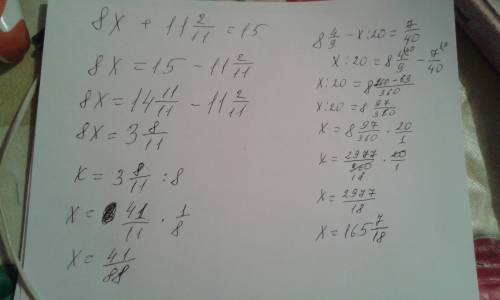 8x + 11 2/11 = 15
8x = 15 - 11 2/11
8x = 14 11/11 - 11 2/11
8x = 3 8/11
x = 3 8/11 : 8
x = 41/11 · 1/8
x = 41/88
8 4/9 - x : 20 = 7/40
x : 20 = 8 4/9 - 7/40
x : 20 = 8 160-63/360
x : 20 = 8 97/360
x = 8 97/360 · 20/1
x = 2977/360 · 20/1
18
x = 2977/18
x = 165 7/18